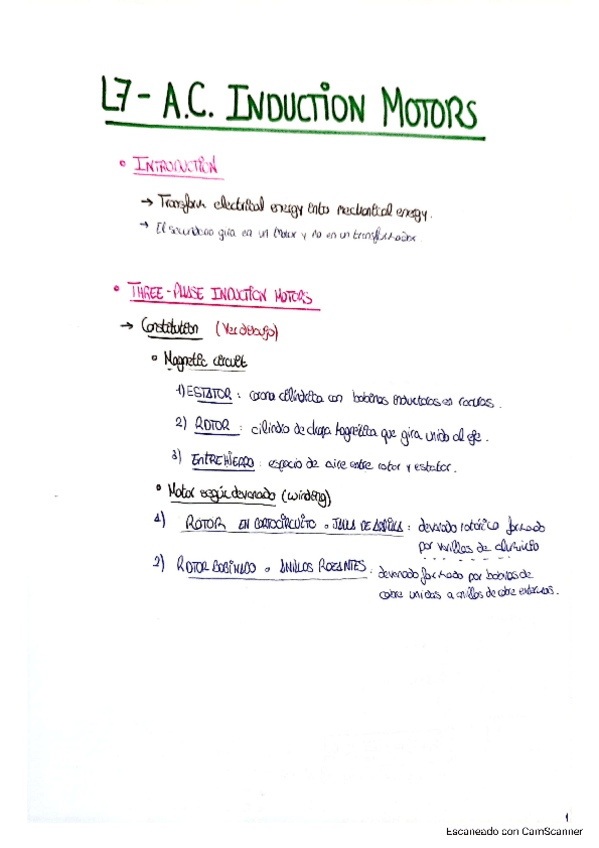 L7 - A.C. INDUCTION MOTORS
• INTRODUCTION
→ Transform electrical energy into mechanical energy.
→ El secundario gira en un motor y no en un transformador.
• THREE-PHASE INDUCTION MOTORS
→ Constitution (Ver dibujo)
• Magnetic circuit
1) ESTATOR : corona cilíndrica con bobinas inductoras en ranuras.
2) ROTOR : cilindro de chapa magnética que gira unido al eje.
3) ENTREHIERRO : espacio de aire entre rotor y estator.
• Motor según devanado (winding)
1) ROTOR EN CORTOCIRCUITO o JAULA DE ARDILLA : devanado rotórico formado
por varillas de aluminio
2) ROTOR BOBINADO o ANILLOS ROZANTES : devanado formado por bobinas de
cobre unidas a anillos de cobre externos.
1
Escaneado con CamScanner